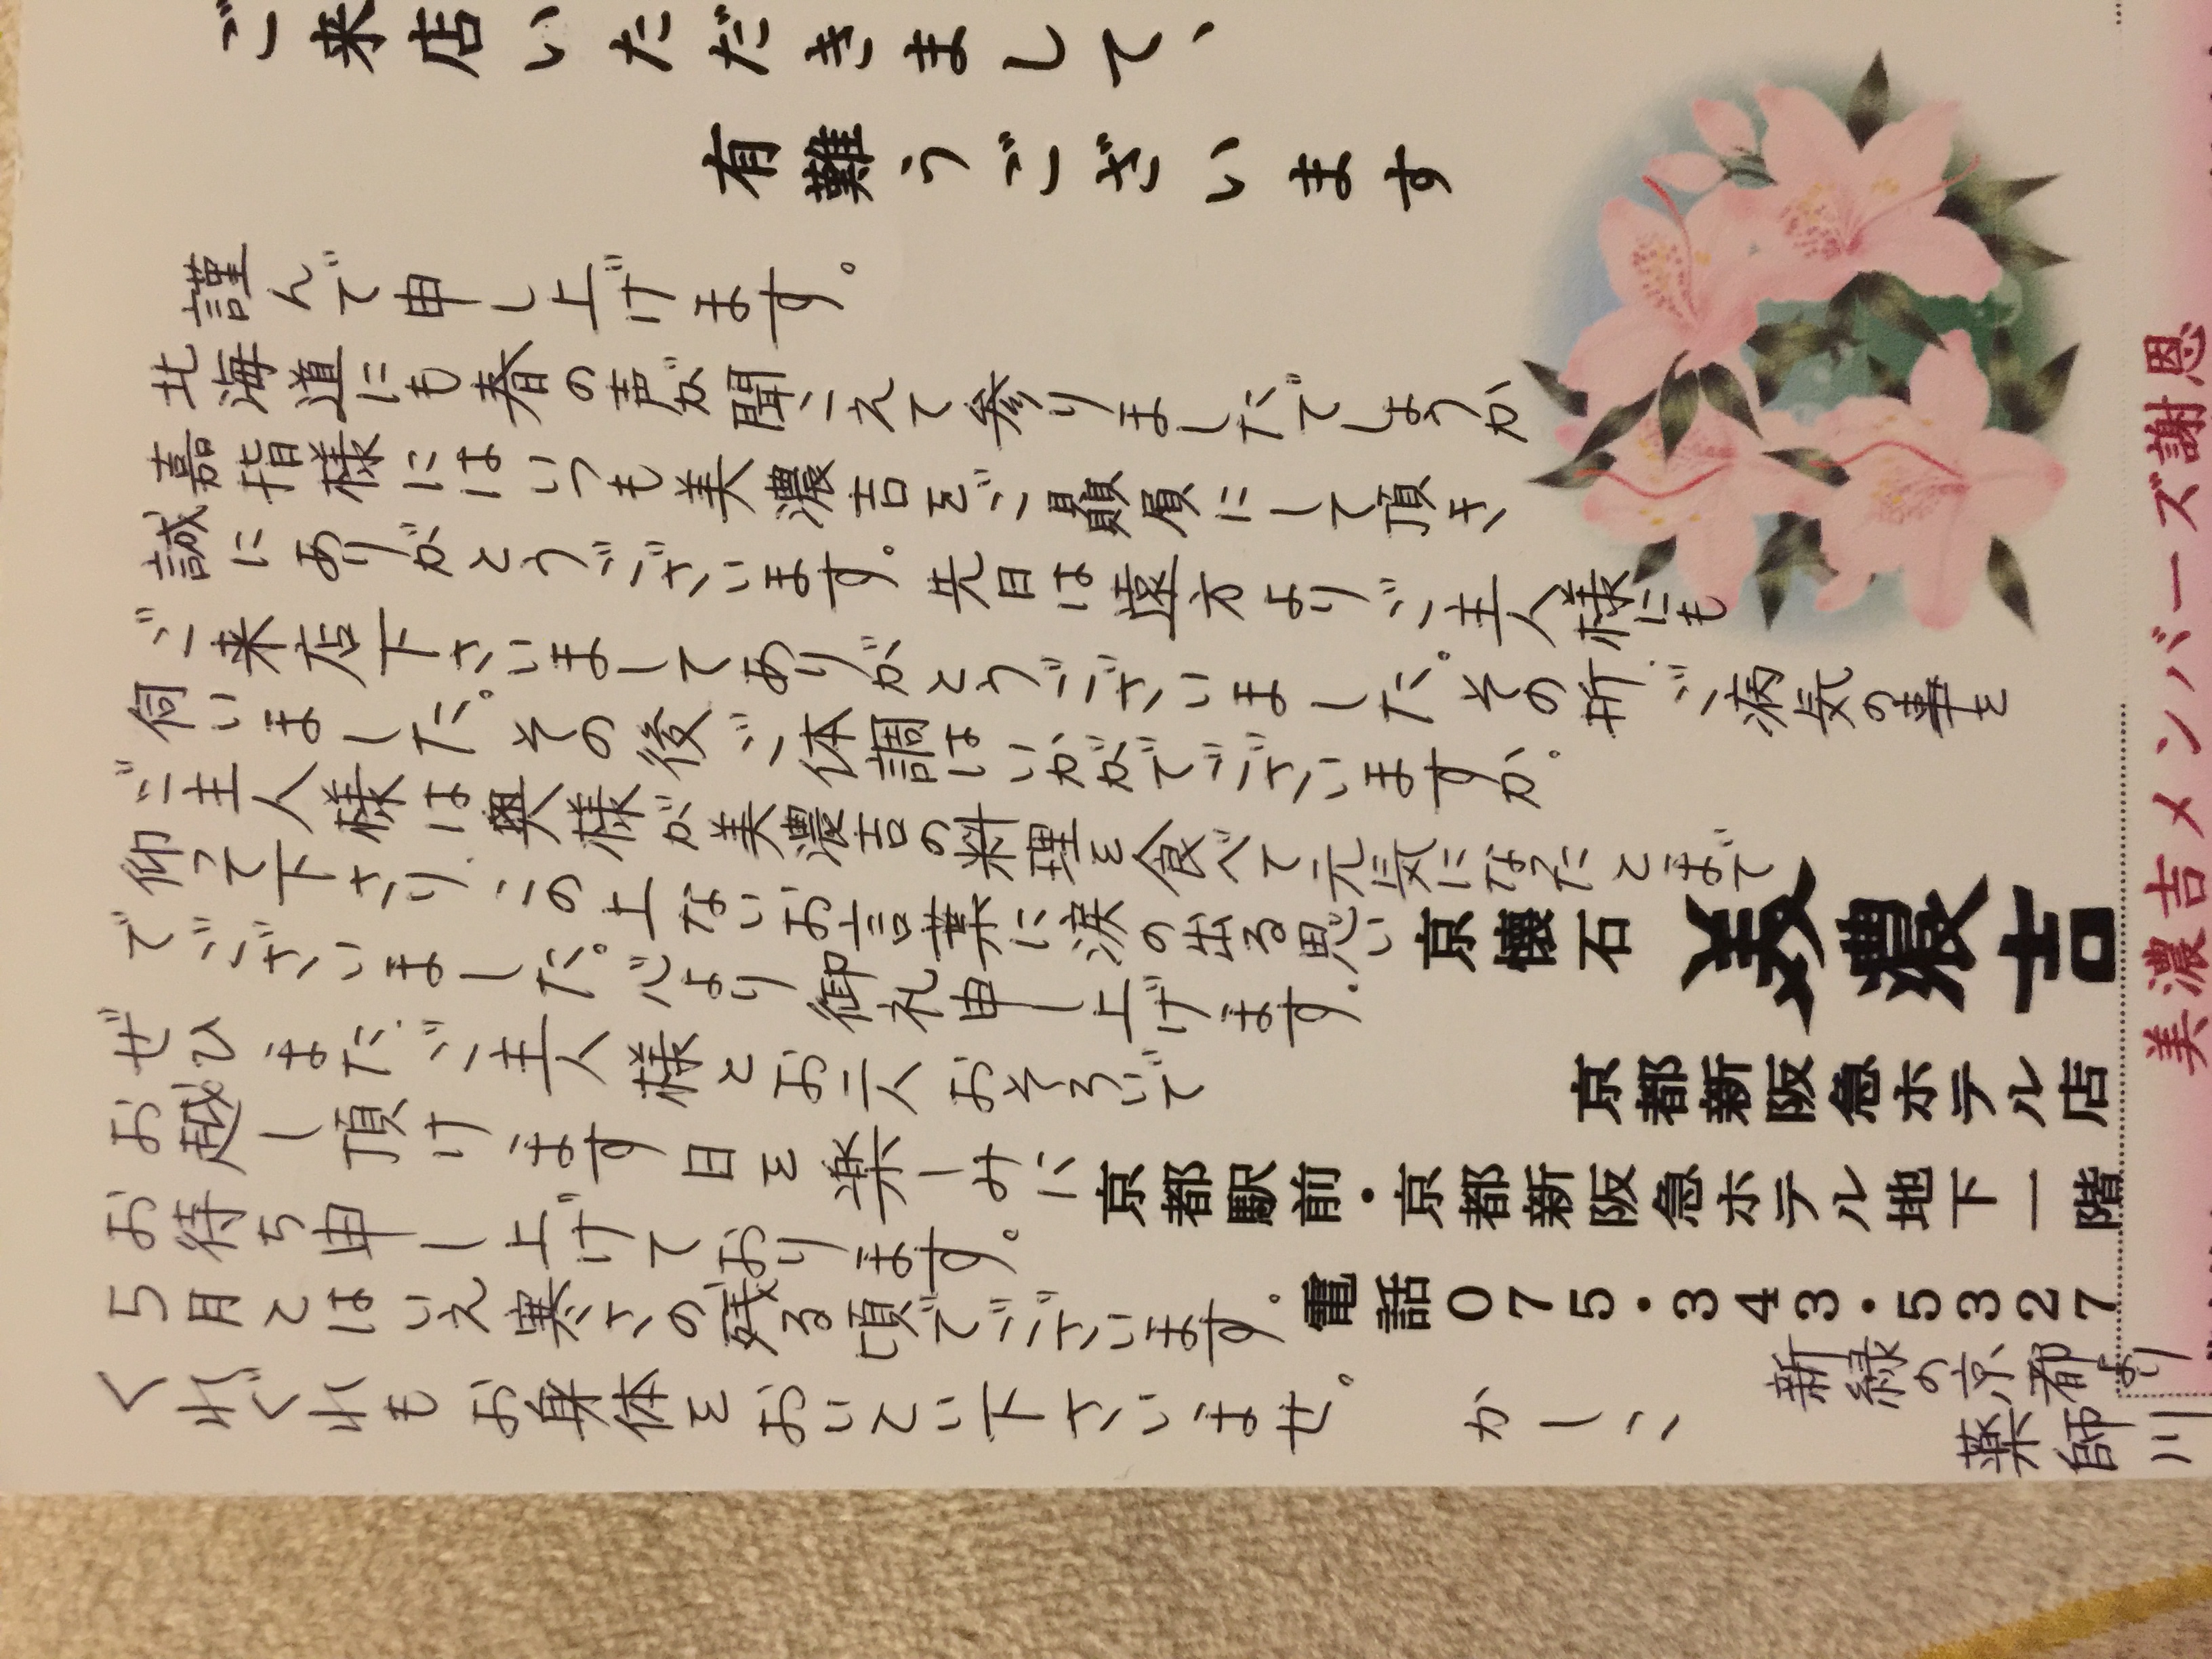 ご来店いただきまして、
有難うございます
謹んで申し上げます。
北海道にも春の声が聞こえて参りましたでしょうか
嘉指様にはいつも美濃吉をご贔屓にして頂き
誠にありがとうございます。先日は遠方よりご主人様にも
ご来店下さいましてありがとうございました。その折ご病気の事を
伺いました。その後ご体調はいかがでございますか。
ご主人様は奥様が美濃吉の料理を食べて元気になたとまで
仰って下さり、この上ないお言葉に涙の出る思い
でございました。心より御礼申し上げます。
ぜひまたご主人様とお二人おそろいで
お越し頂けます日を楽しみに
お待ち申し上げております。
5月とはいえ寒さの残る頃でございます。
くれぐれもお身体をおいとい下さいませ。
かしこ
新緑の京都より
薬師川
京懐石
美濃吉
京都新阪急ホテル店
京都駅前・京都新阪急ホテル地下一階
電話075・343・5327
美濃吉メンバーズ謝恩